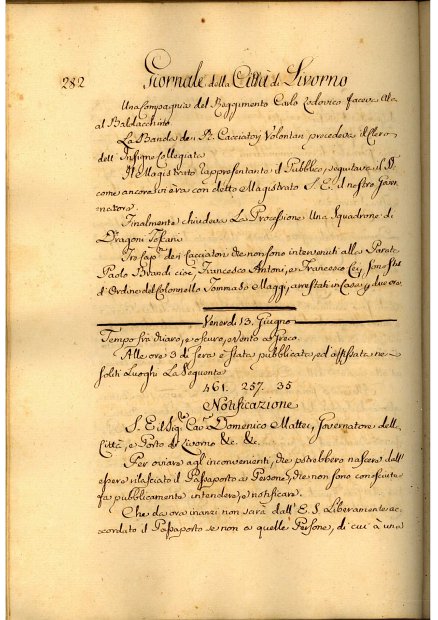 282 Giornale della Città di Livorno
Una Compagnia del Reggimento Carlo Lodovico faceva Ala
al Baldacchino.
La Banda dei R. Cacciatori Volontari precedeva il Clero
dell' Insigne Collegiata
Il Magistrato rappresentante il Pubblico, seguitava il
come ancora vi era con detto Magistrato S. E. il nostro Gover
natore.
Finalmente chiudeva La Processione Una Squadrone di
Dragoni Toscani
Tre Cap. dei Cacciatori che non sono intervenuti alla Parata
Paolo Brandi cioè, Francesco Antoni, e Francesco
d'Ordine del Colonnello Tommaso Maggi, arrestati in Casa p due ore.
Venerdì 13. Giugno
Tempo fra chiaro, e oscuro, e Vento a Greco
Alle ore 3 di Sera è stata pubblicata, ed affissata ne
soliti Luoghi La Seguente
461. 257. 35
Notificazione
S. E. il Sig. Cav. Domenico Mattei, Governatore dell
Città, e Porto di Livorno &c. &c.
Per ovviare agli inconvenienti, che potrebbero nascere dall'
essere rilasciato il Passaporto a Persone, che non sono conosciute
fa pubblicamente intendere, e notificare.
Che da ora inanzi non sarà dall' E. S. Liberamente ac
cordato il Passaporto se non a quelle Persone, di cui a una